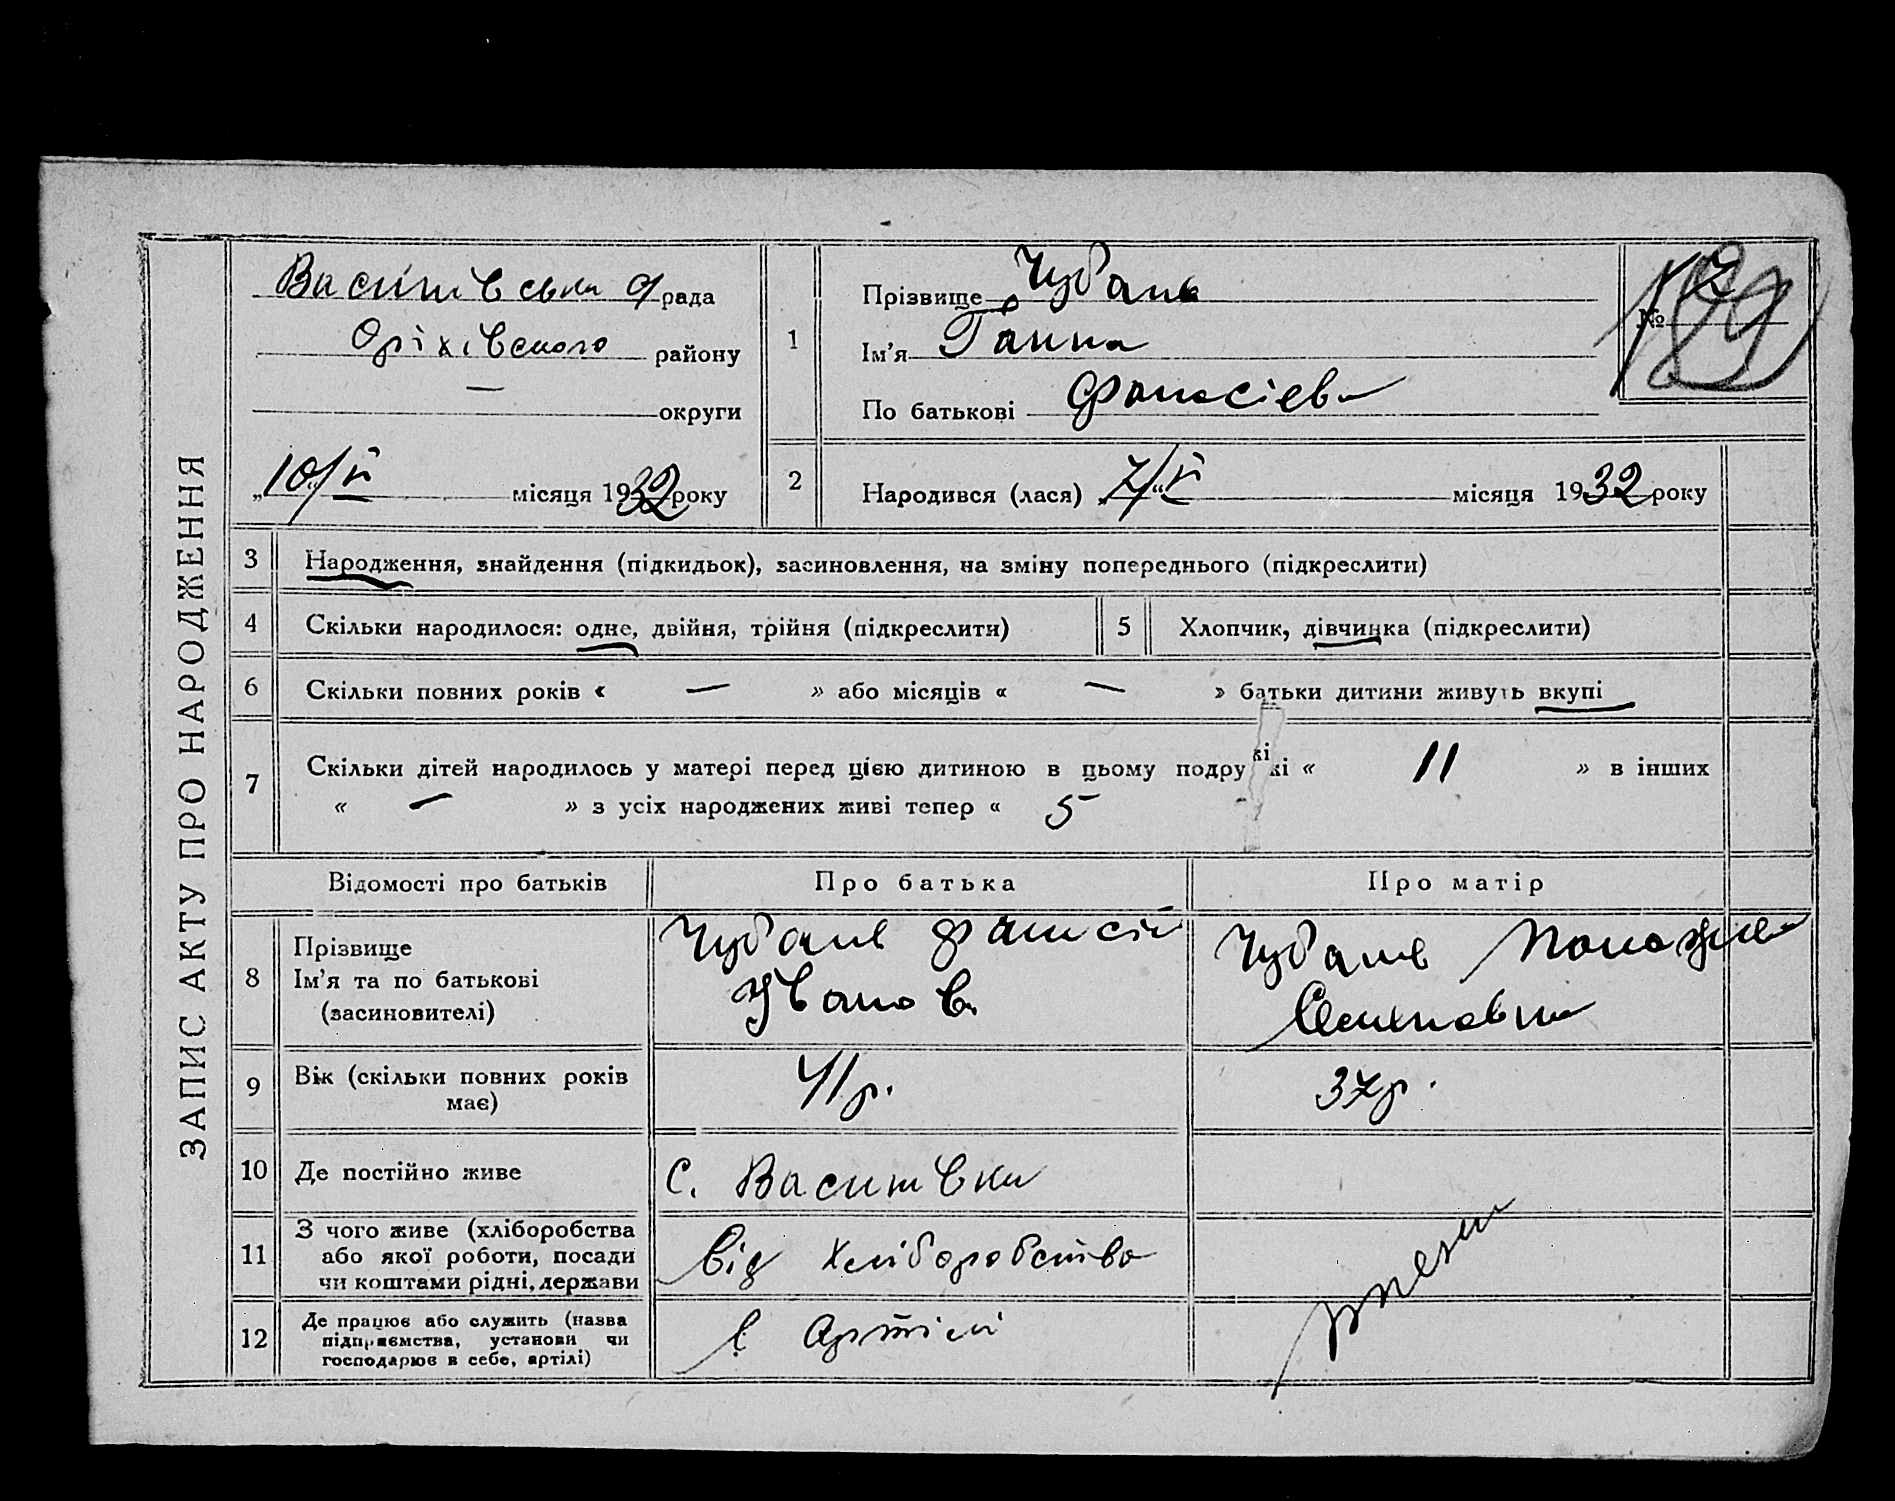 ЗАПИС АКТУ ПРО НАРОДЖЕННЯ
Василівська рада
Оріхівського району
— округи
„10/V місяця 1932 року
1
Прізвище Чубань
Ім'я Ганна
По батькові Фанасієв
№
189
2
Народився (лася) „7/V місяця 1932 року
3 Народження, знайдення (підкидьок), засиновлення, на зміну попереднього (підкреслити)
4 Скільки народилося: одне, двійня, трійня (підкреслити)
5 Хлопчик, дівчинка (підкреслити)
6 Скільки повних років « — » або місяців « — » батьки дитини живуть вкупі
7 Скільки дітей народилось у матері перед цією дитиною в цьому подружжі « 11 » в інших
« — » з усіх народжених живі тепер « 5
Відомості про батьків
Про батька
Про матір
8 Прізвище
Ім'я та по батькові
(засиновителі)
Чубань Фанасій
Іванов.
Чубань
Семеновна
9 Вік (скільки повних років
має)
41 р.
37 р.
10 Де постійно живе
с. Василівка
11 З чого живе (хліборобства
або якої роботи, посади
чи коштами рідні, держави
від хліборобства
12 Де працює або служить (назва
підприємства, установи чи
господарює в себе, артілі)
в Артілі